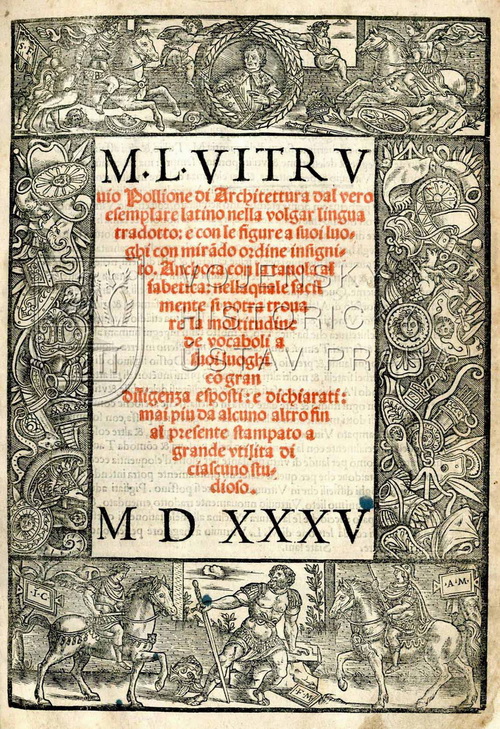 M·L·VITRV
uio Pollione di Architettura dal vero
esemplare latino nella volgar lingua
tradotto: e con le figure a suoi luo-
ghi con mirãdo ordine insigni-
to. Anchora con la tauola al
fabetica: nella quale facil
mente si potra troua
re la moltitudine
de vocaboli a
suoi luoghi
cõ gran
diligenza esposti: e dichiarati:
mai piu da alcuno altro fin
al presente stampato a
grande vtilita di
ciascuno stu-
dioso.
M D XXXV
·I·C·
·A·M·
HISTORIC
USTAV PR